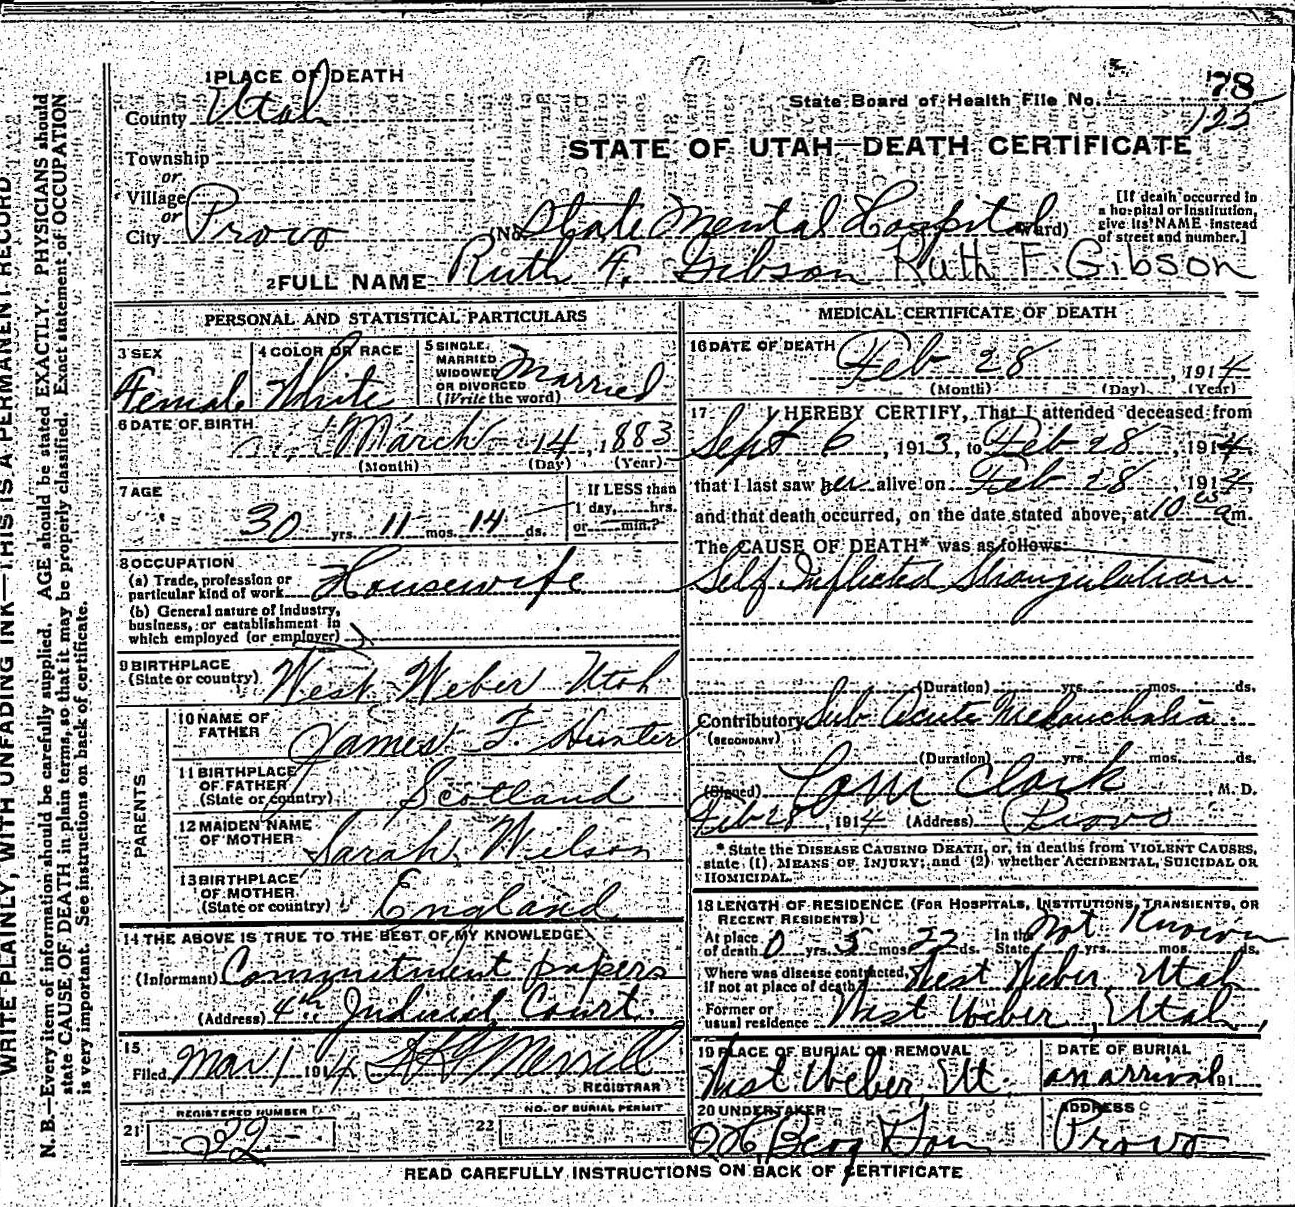 1 PLACE OF DEATH
County Utah
Township
or
Village
or
City Provo
State Board of Health File No. 78
123
STATE OF UTAH—DEATH CERTIFICATE
(No. State Mental Hospital Ward)
[If death occurred in
a hospital or institution,
give its NAME instead
of street and number.]
2 FULL NAME Ruth F. Gibson Ruth F. Gibson
PERSONAL AND STATISTICAL PARTICULARS
3 SEX
Female
4 COLOR OR RACE
White
5 SINGLE,
MARRIED
WIDOWED
OR DIVORCED
(Write the word)
Married
6 DATE OF BIRTH
March 14, 1883
(Month) (Day) (Year)
7 AGE
30 yrs. 11 mos. 14 ds.
If LESS than
1 day, hrs.
or min.?
8 OCCUPATION
(a) Trade, profession or
particular kind of work Housewife
(b) General nature of Industry,
business, or establishment in
which employed (or employer)
9 BIRTHPLACE
(State or country) West Weber Utah
PARENTS
10 NAME OF
FATHER James F. Hunter
11 BIRTHPLACE
OF FATHER
(State or country) Scotland
12 MAIDEN NAME
OF MOTHER Sarah Wilson
13 BIRTHPLACE
OF MOTHER
(State or country) England
14 THE ABOVE IS TRUE TO THE BEST OF MY KNOWLEDGE
(Informant) Commitment papers
(Address) 4th Judicial Court.
15
Filed Mar 1 1914 Merrill
REGISTRAR
REGISTERED NUMBER
21 22
NO. OF BURIAL PERMIT
22
MEDICAL CERTIFICATE OF DEATH
16 DATE OF DEATH
Feb 28, 1914
(Month) (Day) (Year)
17 I HEREBY CERTIFY, That I attended deceased from
Sept 6, 1913, to Feb 28, 1914,
that I last saw her alive on Feb 28, 1914,
and that death occurred, on the date stated above, at 10 am.
The CAUSE OF DEATH* was as follows:
Self Inflicted Strangulation
(Duration) yrs. mos. ds.
Contributory Sub Acute Melancholia
(SECONDARY)
(Duration) yrs. mos. ds.
(Signed) Clark, M. D.
Feb 28, 1914 (Address) Provo
* State the DISEASE CAUSING DEATH, or, in deaths from VIOLENT CAUSES,
state (1) MEANS OF INJURY; and (2) whether ACCIDENTAL, SUICIDAL OR
HOMICIDAL.
18 LENGTH OF RESIDENCE (FOR HOSPITALS, INSTITUTIONS, TRANSIENTS, OR
RECENT RESIDENTS)
At place
of death 0 yrs. 5 mos. 22 ds. In the
State Not Known yrs. mos. ds.
Where was disease contracted,
if not at place of death? West Weber, Utah
Former or
usual residence West Weber, Utah,
19 PLACE OF BURIAL OR REMOVAL
West Weber, Ut.
DATE OF BURIAL
on arrival 191
20 UNDERTAKER
Berg & Son
ADDRESS
Provo
READ CAREFULLY INSTRUCTIONS ON BACK OF CERTIFICATE
WRITE PLAINLY, WITH UNFADING INK—THIS IS A PERMANENT RECORD
N. B.—Every item of information should be carefully supplied. AGE should be stated EXACTLY. PHYSICIANS should
state CAUSE OF DEATH in plain terms, so that it may be properly classified. Exact statement of OCCUPATION
is very important. See instructions on back of certificate.